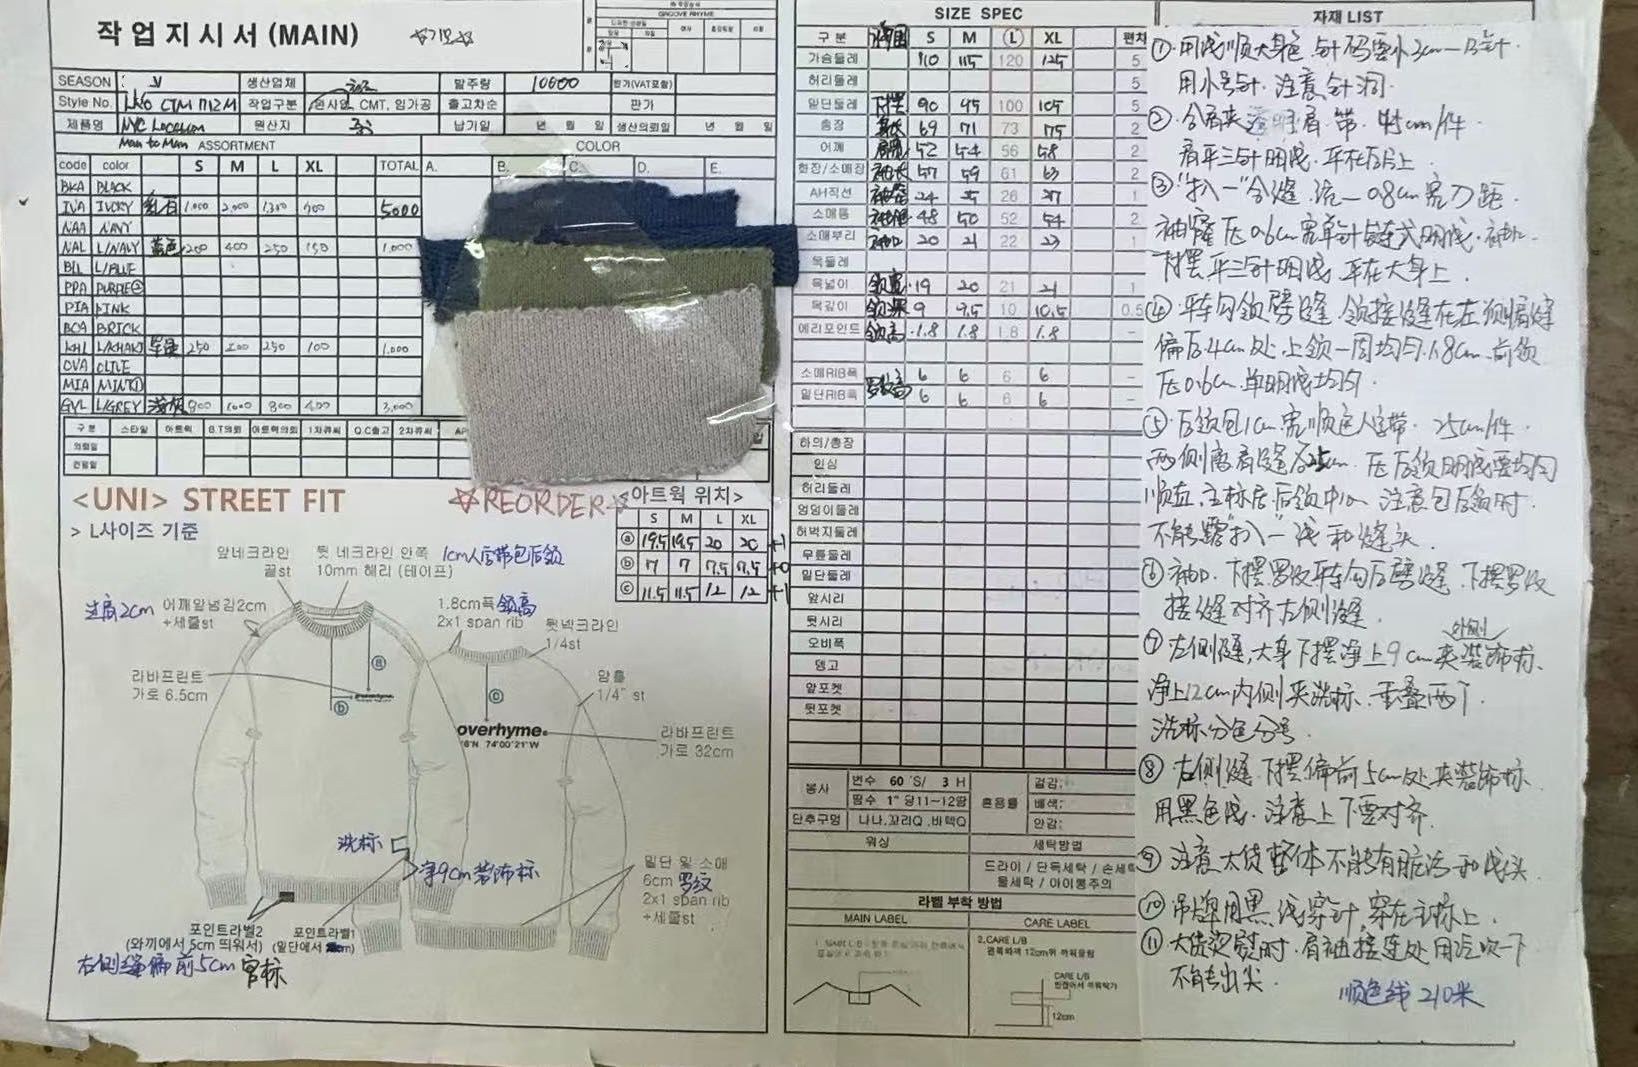 작업지시서 (MAIN)
GROOVE RHYME
SEASON
생산업체
발주량 10000
판가(VAT포함)
Style No.
작업구분 본사입, CMT, 임가공
출고차순
판가
제품명 NYC Location
원산지
납기일 년 월 일
생산의뢰일 년 월 일
Man to Man ASSORTMENT
COLOR
code color S M L XL TOTAL A. B. C. D. E.
BKA BLACK
IVA IVORY 1.000 2.000 1.300 700 5000
NAA NAVY
NAL L/NAVY 蓝色 200 400 250 150 1.000
BLL L/BLUE
PPA PURPLE
PIA PINK
BCA BRICK
KHI L/KHAKI 250 250 100 1.000
OVA OLIVE
MIA MINT
GVL L/GREY 浅灰 800 1000 800 400 3,000
구분 스타일 아트웍 B.T의뢰 아트웍의뢰 1차큐씨 Q.C출고 2차큐씨
의뢰일
<UNI> STREET FIT
☆REORDER☆
<아트웍 위치>
> L사이즈 기준
S M L XL
ⓐ 19.5 19.5 20 20 +1
ⓑ 7 7 7.5 7.5 +0
ⓒ 11.5 11.5 12 12 +1
앞네크라인
골st
뒷 네크라인 안쪽
10mm 헤리 (테이프)
1cm人字带包后领
过肩2cm 어깨앞넘김2cm
+세줄st
1.8cm폭 领高
2x1 span rib
뒷넥크라인
1/4st
라바프린트
가로 6.5cm
ⓐ
ⓑ
ⓒ
암홀
1/4" st
overhyme.
6'N 74°00'21"W
라바프린트
가로 32cm
洗标
净9cm装饰标
밑단 및 소매
6cm 罗纹
2x1 span rib
+세줄st
포인트라벨2
(와끼에서 5cm 띄워서)
포인트라벨1
右侧缝偏前5cm 官标
SIZE SPEC
구분 S M L XL 편차
가슴둘레 胸围 110 115 120 125 5
허리둘레 5
밑단둘레 下摆 90 95 100 105 5
총장 身长 69 71 73 75 2
어깨 肩宽 52 54 56 58 2
화장/소매장 袖长 57 59 61 63 2
AH직선 24 25 26 27 1
소매통 48 50 52 54 2
소매부리 袖口 20 21 22 23 1
목둘레
목넓이 领宽 19 20 21 21 1
목깊이 领深 9 9.5 10 10.5 0.5
에리포인트 领高 1.8 1.8 1.8 1.8
소매RIB폭 6 6 6 6 -
밑단RIB폭 罗纹高 6 6 6 6 -
하의/총장
인심
허리둘레
엉덩이둘레
허벅지둘레
무릎둘레
밑단둘레
앞시리
뒷시리
오비폭
뎅고
앞포켓
뒷포켓
봉사
번수 60 'S/ 3 H
땀수 1" 당11~12땀
혼용률
겉감:
배색:
안감:
단추구멍 나나,꼬리Q ,바텍Q
워싱
세탁방법
드라이 / 단독세탁 / 손세탁
물세탁 / 아이롱주의
라벨 부착 방법
MAIN LABEL
CARE LABEL
2.CARE L/B
CARE L/B
12cm
자재 LIST
①. 用线顺大身色, 针码要小3cm—13针.
用小号针. 注意针洞.
②. 合肩夹透明肩带. 45cm/件.
肩平三针明线. 平在后片上.
③ "扒一"合缝, 统一0.8cm宽刀距.
袖窿压0.6cm宽单针链式明线. 袖口.
下摆平三针明线, 平在大身上.
④. 平车勾领劈缝. 领接缝在左侧肩缝
偏后4cm处. 上领一周均匀1.8cm. 前领
压0.6cm. 单明线均匀.
⑤. 后领包1cm宽顺色人字带. 25cm/件.
两侧离肩缝后 cm. 压后领明线要均匀
顺直. 主标居后领中间. 注意包后领时.
不能露"扒一"线和缝头.
⑥ 袖口. 下摆罗纹平车勾后劈缝. 下摆罗纹
接缝对齐左侧缝.
⑦ 左侧缝, 大身下摆净上9cm外侧夹装饰标.
净上12cm内侧夹洗标. 重叠两个.
洗标分色分号.
⑧ 右侧缝. 下摆偏前5cm处夹装饰标.
用黑色线. 注意上下要对齐.
⑨ 注意大货整体不能有脏污和线头.
⑩ 吊牌用黑线穿针, 穿在主标上.
⑪ 大货烫熨时. 肩袖接连处用汽吹一下
不能专出尖.
顺色线 210米